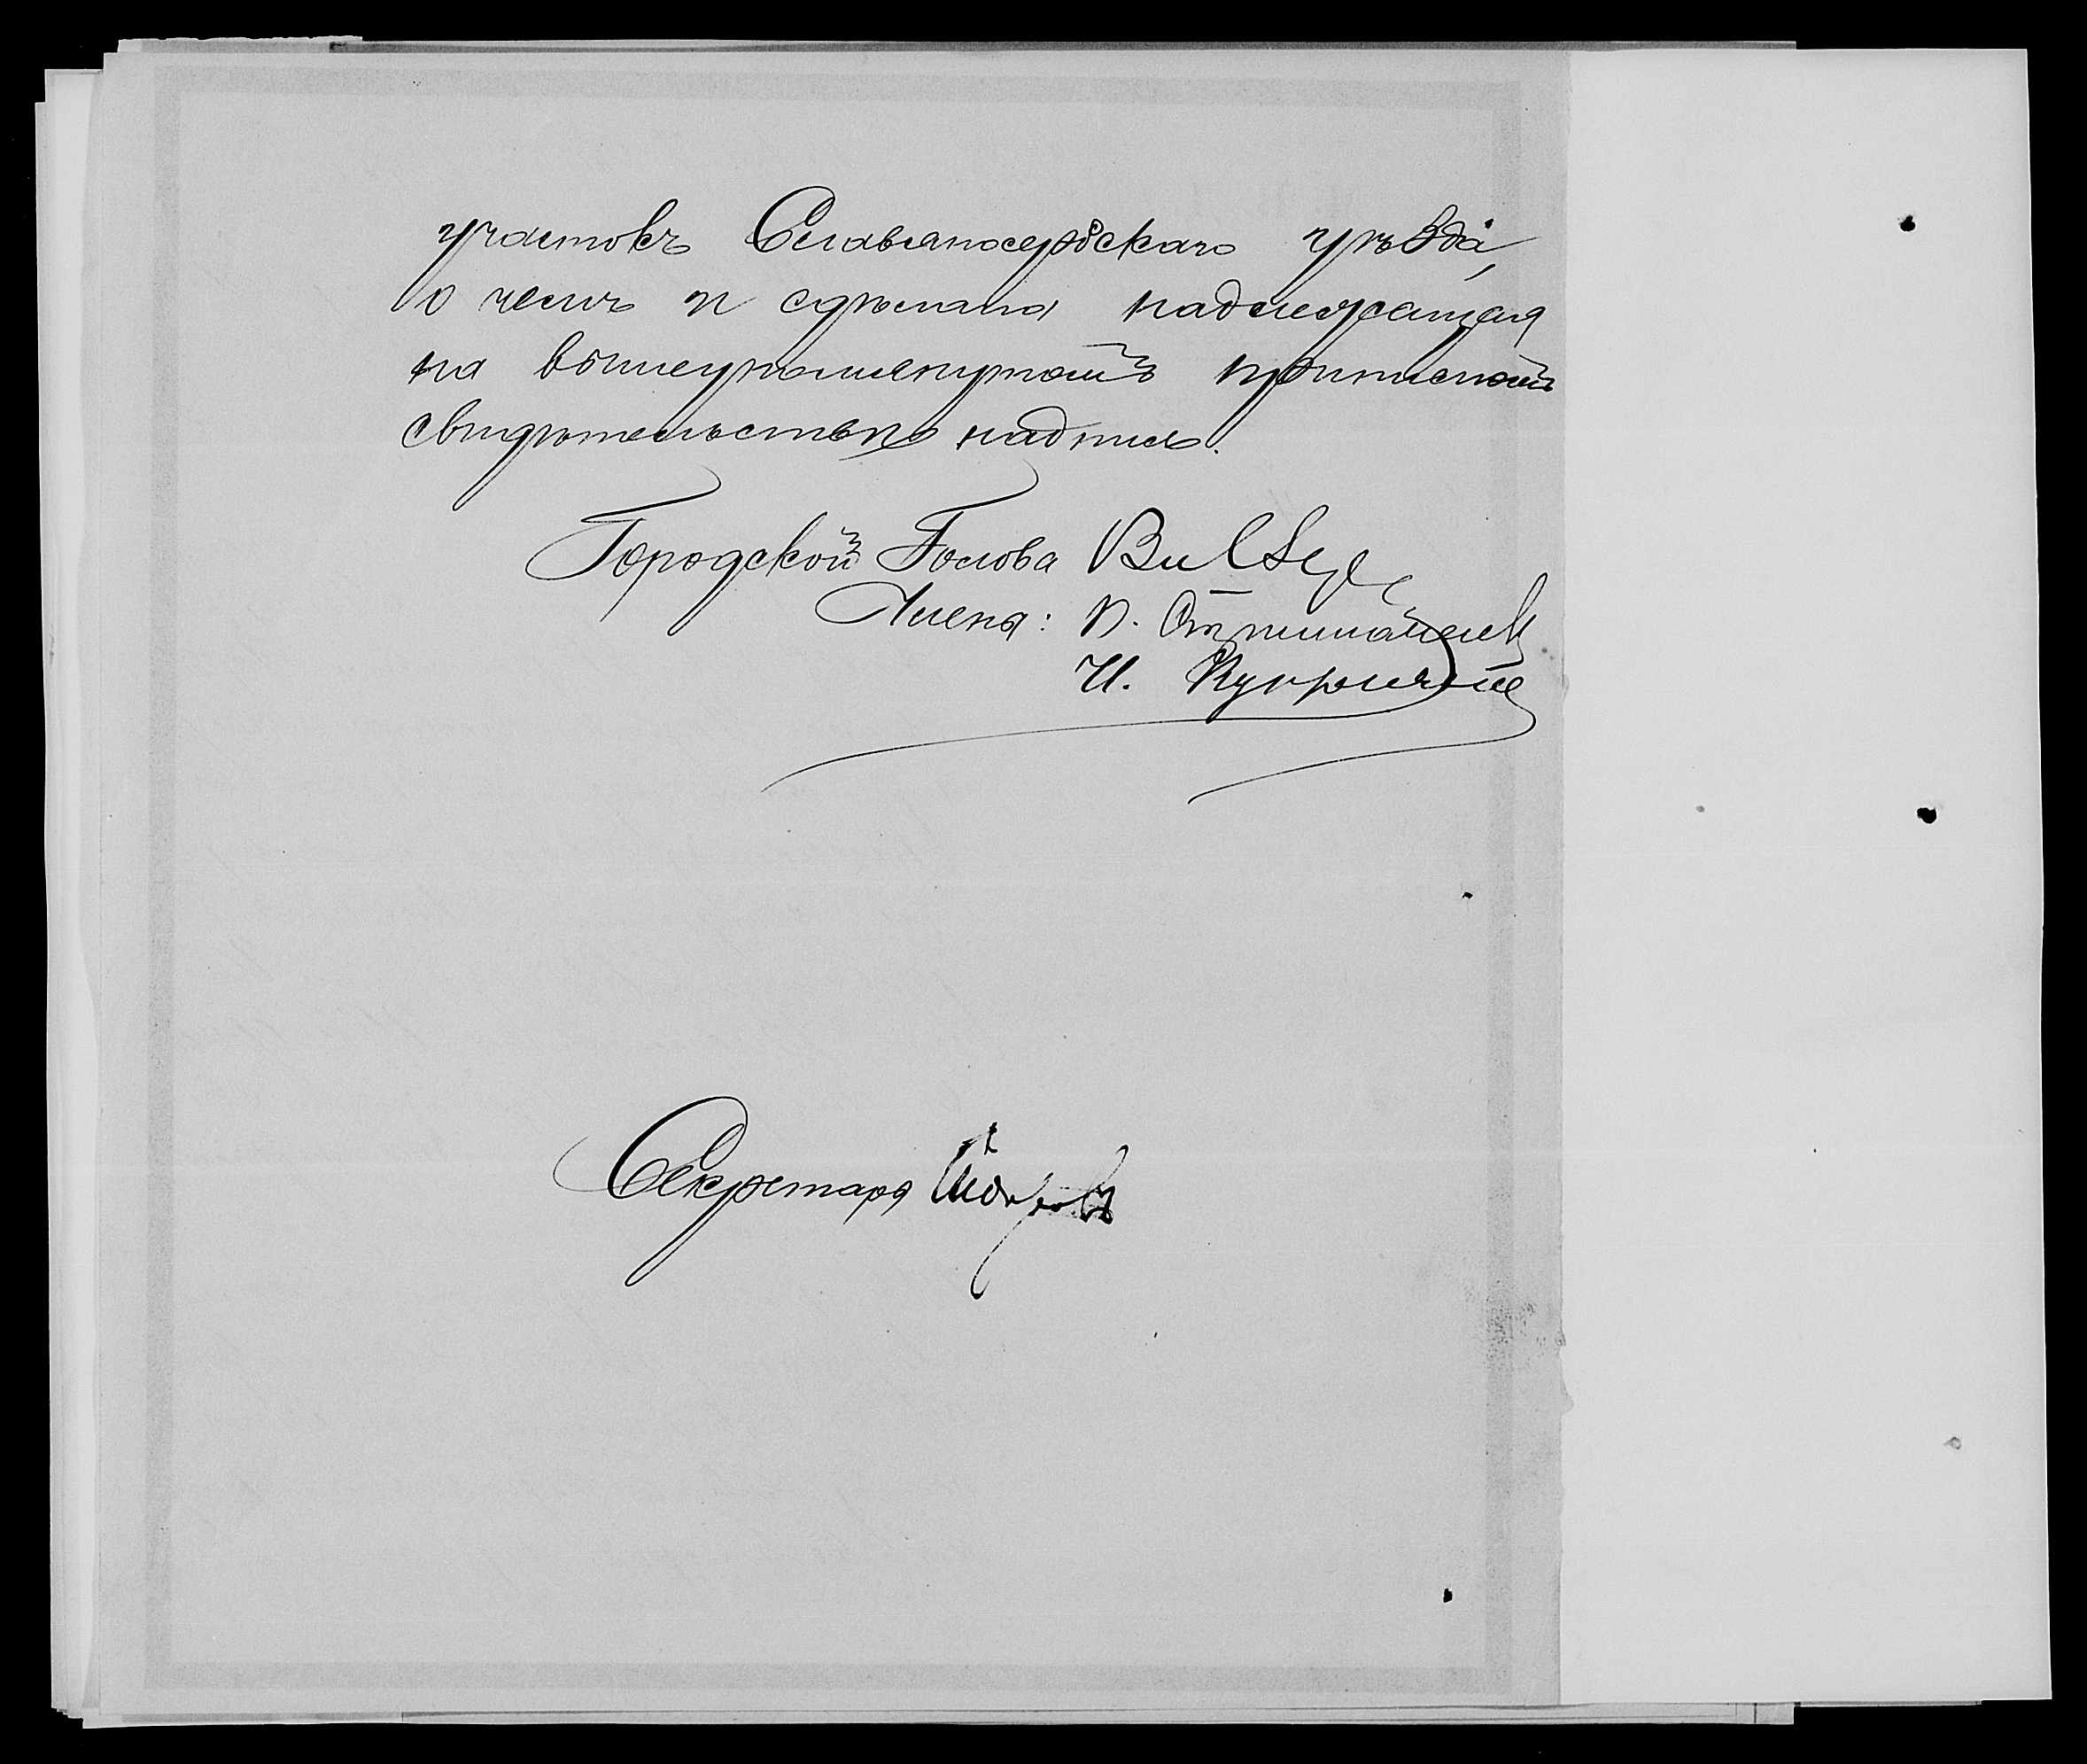 участокъ Славяносербскаго уѣзда,
о чемъ и сдѣлана надлежащая
на вышеупомянутомъ приписномъ
свидѣтельствѣ надпись.
Городской Голова
Члена: П.
И.
Секретарь